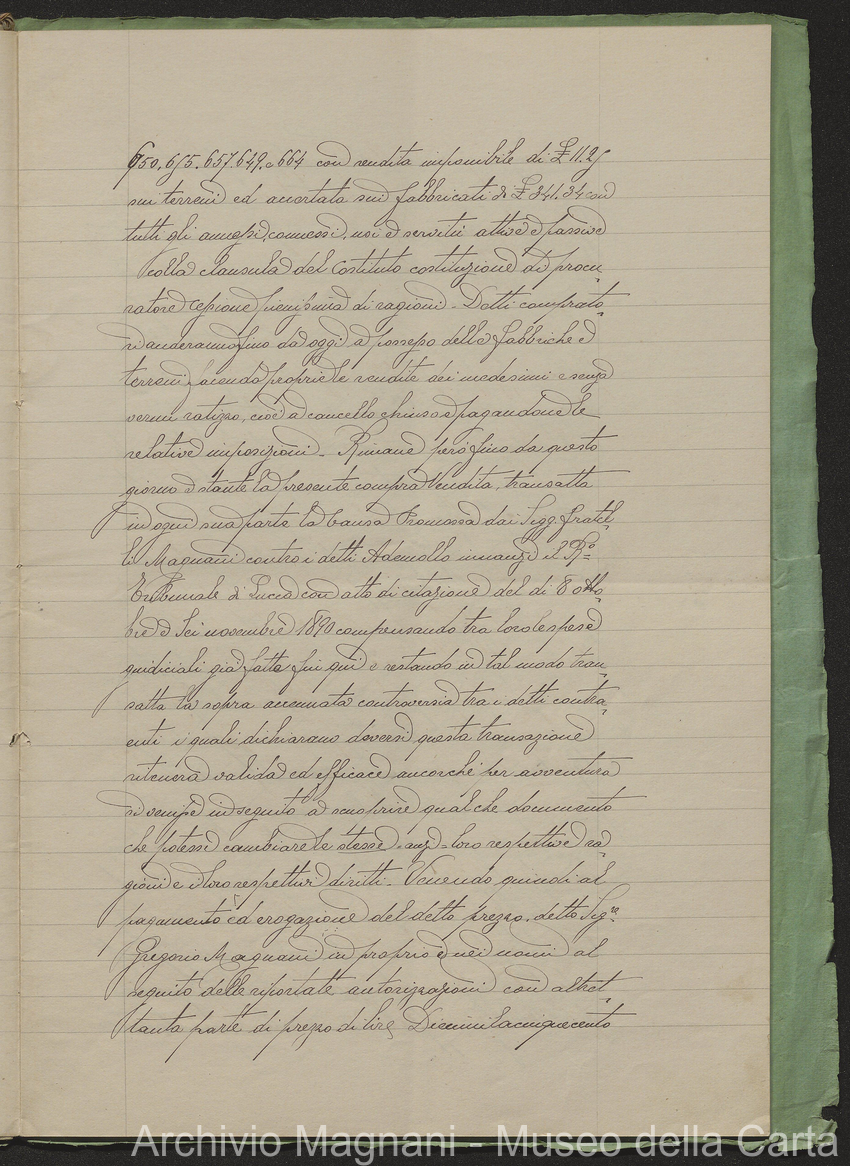 650. 655. 657. 649. e 664 con rendita imponibile di £ 11.25
sui terreni ed accertata sui fabbricati di £ 341.34 con
tutti gli annessi, connessi, usi e servitù attive e passive
colla clausula del Costituto costituzione di procu„
ratore cessione pienissima di ragioni - Detti comprato„
ri anderanno fino da oggi a possesso delle fabbriche e
terreni facendo proprie le rendite dei medesimi e senza
verun ratizzo, cioè a cancello chiuso e pagandone le
relative imposizioni - Rimane però fino da questo
giorno e stante la presente compra vendita, transatta
in ogni sua parte la Causa Promossa dai Sigg. Fratel„
li Magnani contro i detti Ademollo innanzi il R.º
Tribunale di Lucca con atto di citazione del dì 8 otto„
bre e Sei novembre 1890 compensando tra loro le spese
giudiciali già fatte fin qui e restando in tal modo tran„
satta la sopra accennata controversia tra i detti contra„
enti i quali dichiarano doversi questa transazione
ritenere valida ed efficace ancorché per avventura
si venisse in seguito a scuoprire qualche documento
che potesse cambiare le stesse - anzi - loro respettive ra„
gioni e i loro respettivi diritti - Venendo quindi al
pagamento ed erogazione del detto prezzo, detto Sig.re
Gregorio Magnani in proprio e nei nomi al
seguito delle riportate autorizzazioni con altret„
tanta parte di prezzo di lire Diecimilacinquecento
Archivio Magnani - Museo della Carta